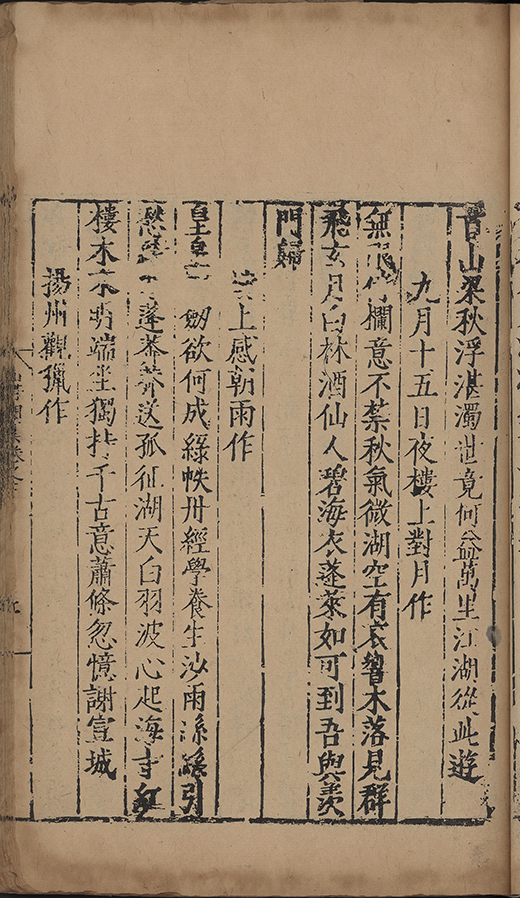 山梁秋浮湛濁世竟何益萬里江湖從此遊
九月十五日夜樓上對月作
無 欄意不禁秋氣微湖空有 響木落見群
飛玄月白林酒仙人碧海衣蓬萊如可到吾與羨
門歸
上感朝雨作
皇皇 劒欲何成綠帙丹經學養生沙雨 引
愁 蓬 送孤征湖天白羽波心起海寺紅
樓木末明端坐獨 千古意蕭條忽憶謝宣城
揚州觀獵作